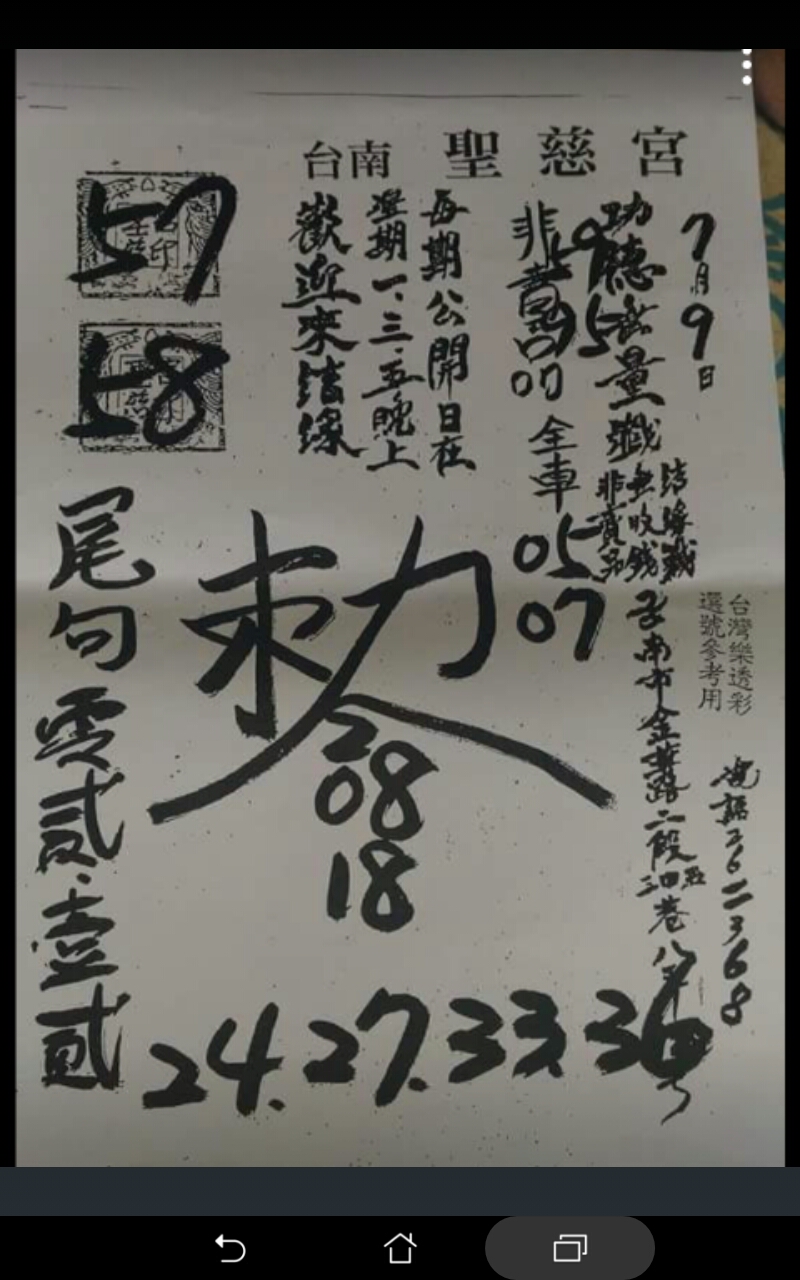 台南 聖慈宮
7月9日
功德無量
結緣戳
無收錢
非賣品
台灣樂透彩
選號參考用
電話2623668
台南市金華路二段
非賣品
全車
05
07
每期公開日在
星期一.三.五晚上
歡迎來結緣
57
58
敕令
08
18
尾句零貳.壹貳
24.27.33.36